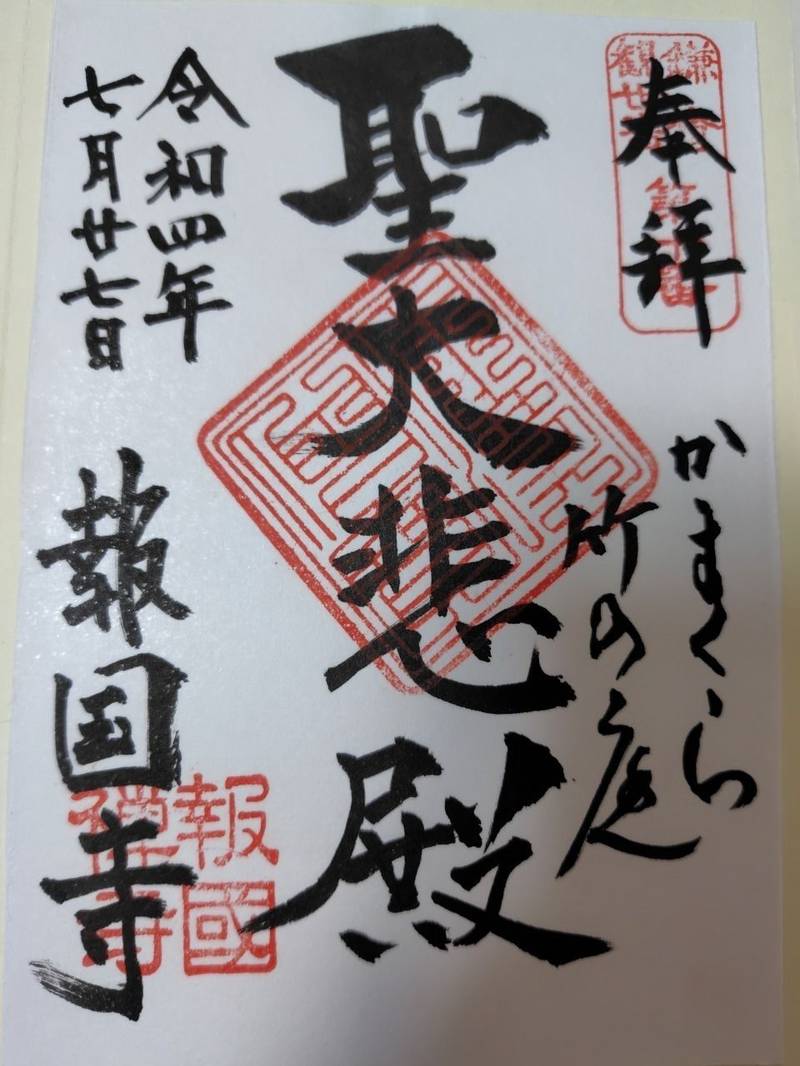 奉拝
かまくら
竹の庭
聖大悲殿
令和四年
七月廿七日
報国寺
報國
禅寺